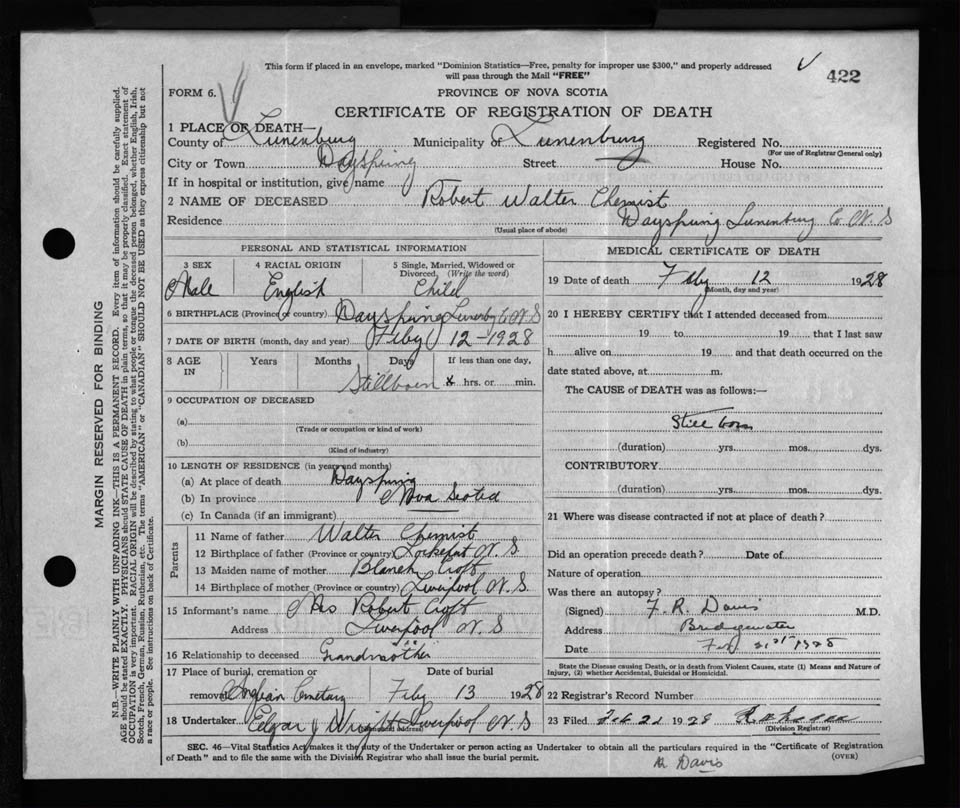 This form if placed in an envelope, marked "Dominion Statistics—Free, penalty for improper use $300," and properly addressed
will pass through the Mail "FREE"
422
FORM 6.
PROVINCE OF NOVA SCOTIA
CERTIFICATE OF REGISTRATION OF DEATH
1 PLACE OF DEATH—
County of Lunenburg Municipality of Lunenburg Registered No.
(For use of Registrar General only)
City or Town Dayspring Street House No.
If in hospital or institution, give name
2 NAME OF DECEASED Robert Walter Chemist
Residence Dayspring Lunenburg Co N.S
(Usual place of abode)
PERSONAL AND STATISTICAL INFORMATION
3 SEX 4 RACIAL ORIGIN 5 Single, Married, Widowed or
Divorced, (Write the word)
Male English Child
6 BIRTHPLACE (Province or country) Dayspring Lunenbg Co N S
7 DATE OF BIRTH (month, day and year) Feby 12 - 1928
8 AGE IN Years Months Days If less than one day,
Stillborn hrs. or min.
9 OCCUPATION OF DECEASED
(a)
(Trade or occupation or kind of work)
(b)
(Kind of industry)
10 LENGTH OF RESIDENCE (in years and months)
(a) At place of death Dayspring
(b) In province Nova Scotia
(c) In Canada (if an immigrant)
Parents
11 Name of father Walter Chemist
12 Birthplace of father (Province or country) Lockeport N. S
13 Maiden name of mother Blanch Croft
14 Birthplace of mother (Province or country) Liverpool N. S
15 Informant's name Mrs Robert Croft
Address Liverpool N. S
16 Relationship to deceased Grandmother
17 Place of burial, cremation or Date of burial
removal Anglican Cemetary Feby 13 1928
18 Undertaker Edgar J Wright Liverpool N. S
MEDICAL CERTIFICATE OF DEATH
19 Date of death Feby 12 1928
(Month, day and year)
20 I HEREBY CERTIFY that I attended deceased from
19 to 19 that I last saw
h alive on 19 and that death occurred on the
date stated above, at m.
The CAUSE of DEATH was as follows:—
Still born
(duration) yrs. mos. dys.
CONTRIBUTORY
(duration) yrs. mos. dys.
21 Where was disease contracted if not at place of death?
Did an operation precede death? Date of
Nature of operation
Was there an autopsy?
(Signed) F. R. Davis M.D.
Address Bridgewater
Date
State the Disease causing Death, or in death from Violent Causes, state (1) Means and Nature of
Injury, (2) whether Accidental, Suicidal or Homicidal.
22 Registrar's Record Number
23 Filed Feb 21 1928
(Division Registrar)
SEC. 46—Vital Statistics Act, makes it the duty of the Undertaker or person acting as Undertaker to obtain all the particulars required in the "Certificate of Registration
of Death" and to file the same with the Division Registrar who shall issue the burial permit.
(OVER)
Davis
MARGIN RESERVED FOR BINDING
N.B.—WRITE PLAINLY WITH UNFADING INK—THIS IS A PERMANENT RECORD. Every item of information should be carefully supplied.
AGE should be stated EXACTLY. PHYSICIANS should STATE CAUSE OF DEATH in plain terms, so that it may be properly classified. Exact statement of
OCCUPATION is very important. RACIAL ORIGIN will be described by stating to what people or tongue the deceased person belonged, whether English, Irish,
Scotch, French, German, Russian, Ruthenian, etc. The terms "AMERICAN" or "CANADIAN" SHOULD NOT BE USED as they express citizenship but not
a race or people. See instructions on back of Certificate.